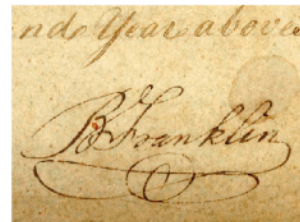 nd Year above
B Franklin